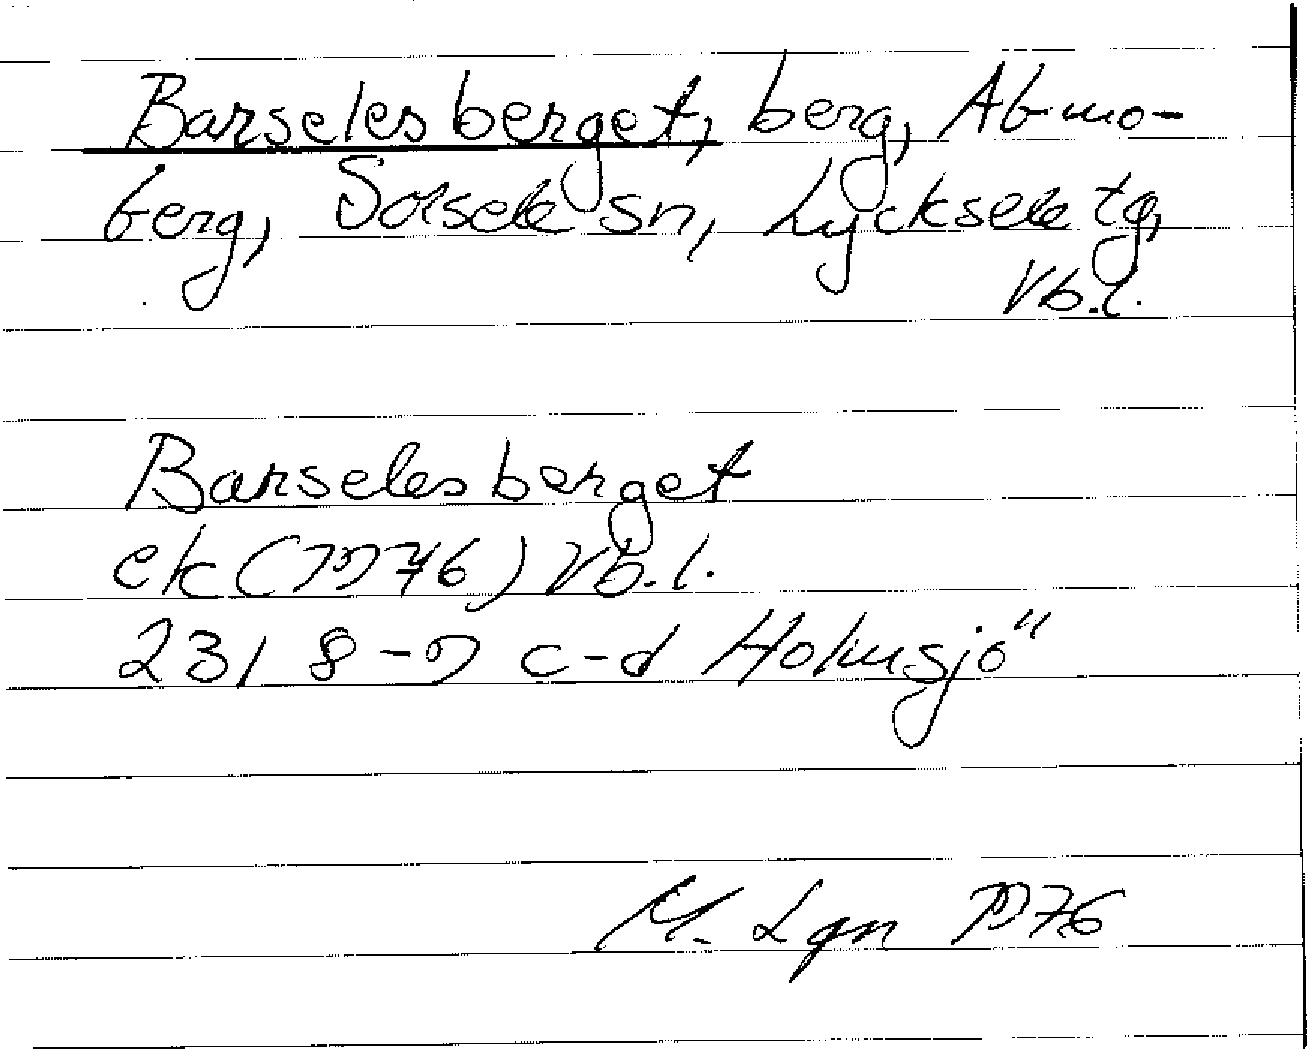 Barselesberget, berg, Abmo-
berg, Sorsele sn, Lycksele tg,
Vb.l.
Barselesberget
ek (1976) Vb.l.
23I 8-9 c-d Holmsjö"
M. Lgn 1976